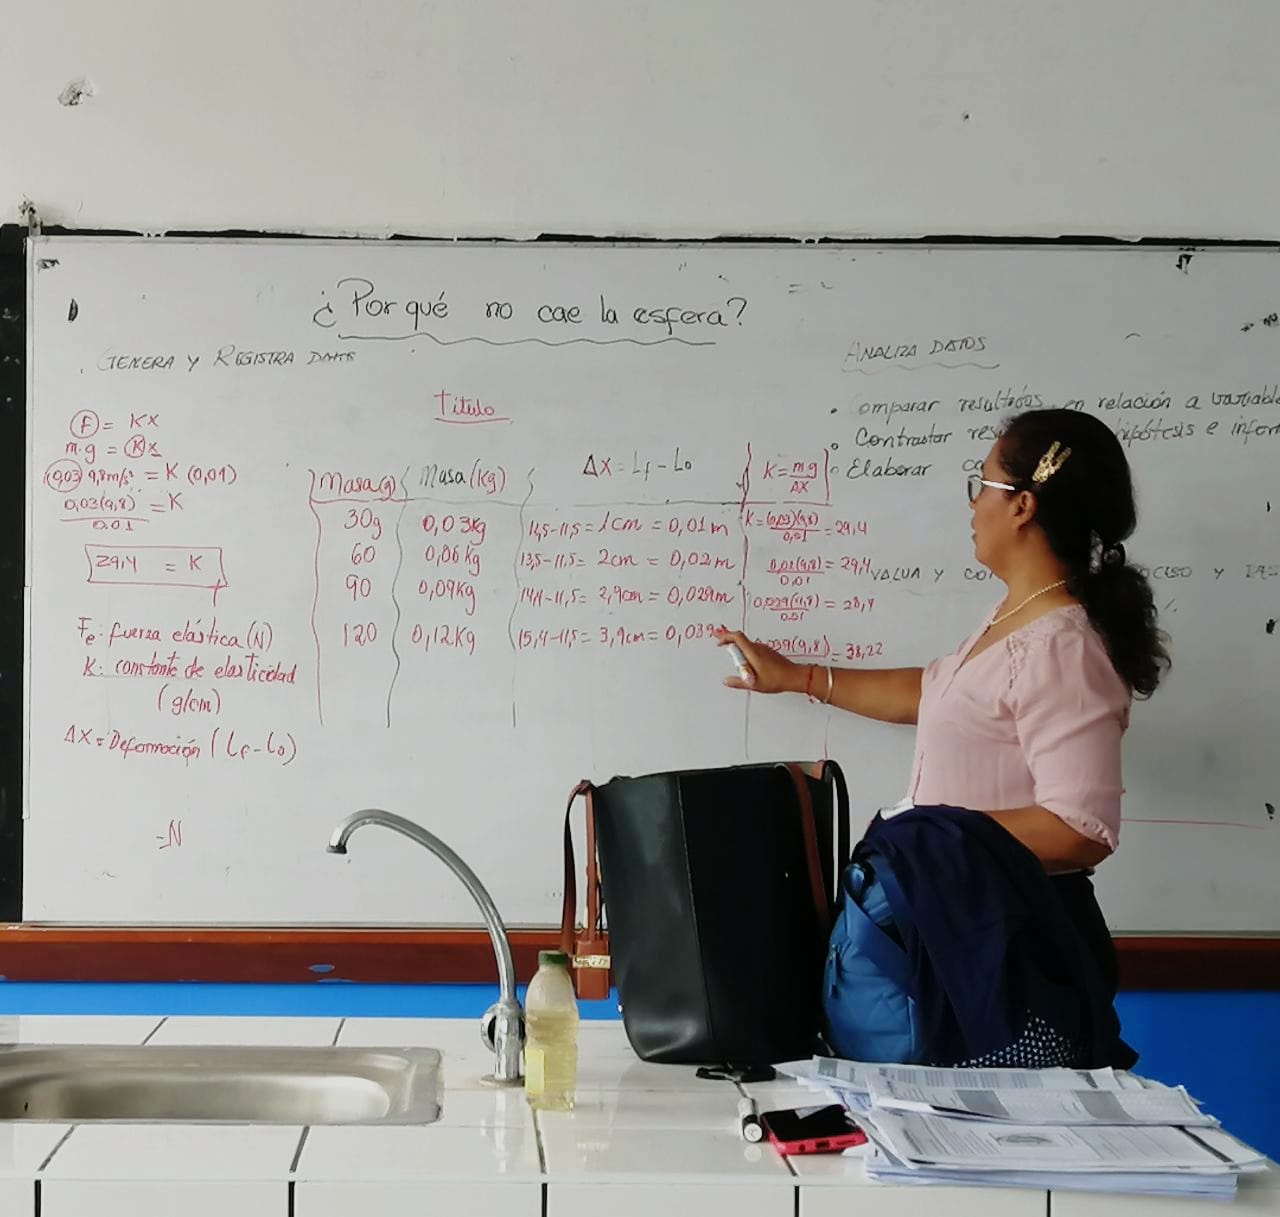 ¿Por qué no cae la esfera?
GENERA Y REGISTRA DATOS
Título
F = Kx
m.g = Kx
(0,03) 9,8m/s² = K (0,01)
0,03(9,8) = K
0,01
29,4 = K
Fe: fuerza elástica (N)
K: constante de elasticidad
(g/cm)
ΔX = Deformación (Lf - Lo)
=N
Masa(g) Masa(Kg) ΔX = Lf - Lo K = mg/ΔX
30g 0,03kg 12,5-11,5= 1cm = 0,01m K=(0,03)(9,8)/0,01 = 29,4
60 0,06Kg 13,5-11,5= 2cm = 0,02m = 29,4
90 0,09Kg 14,4-11,5= 2,9cm = 0,029m
120 0,12Kg 15,4-11,5= 3,9cm = 0,039 (9,8) = 38,22
ANALIZA DATOS
• omparar resultados en relación a variable
• Contrastar hipótesis e infor
• Elaborar
VALUA Y